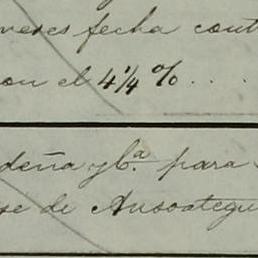 meses fecha cont
con el 4¼ % . . . .
deña y Cª para
se de Ansoategui